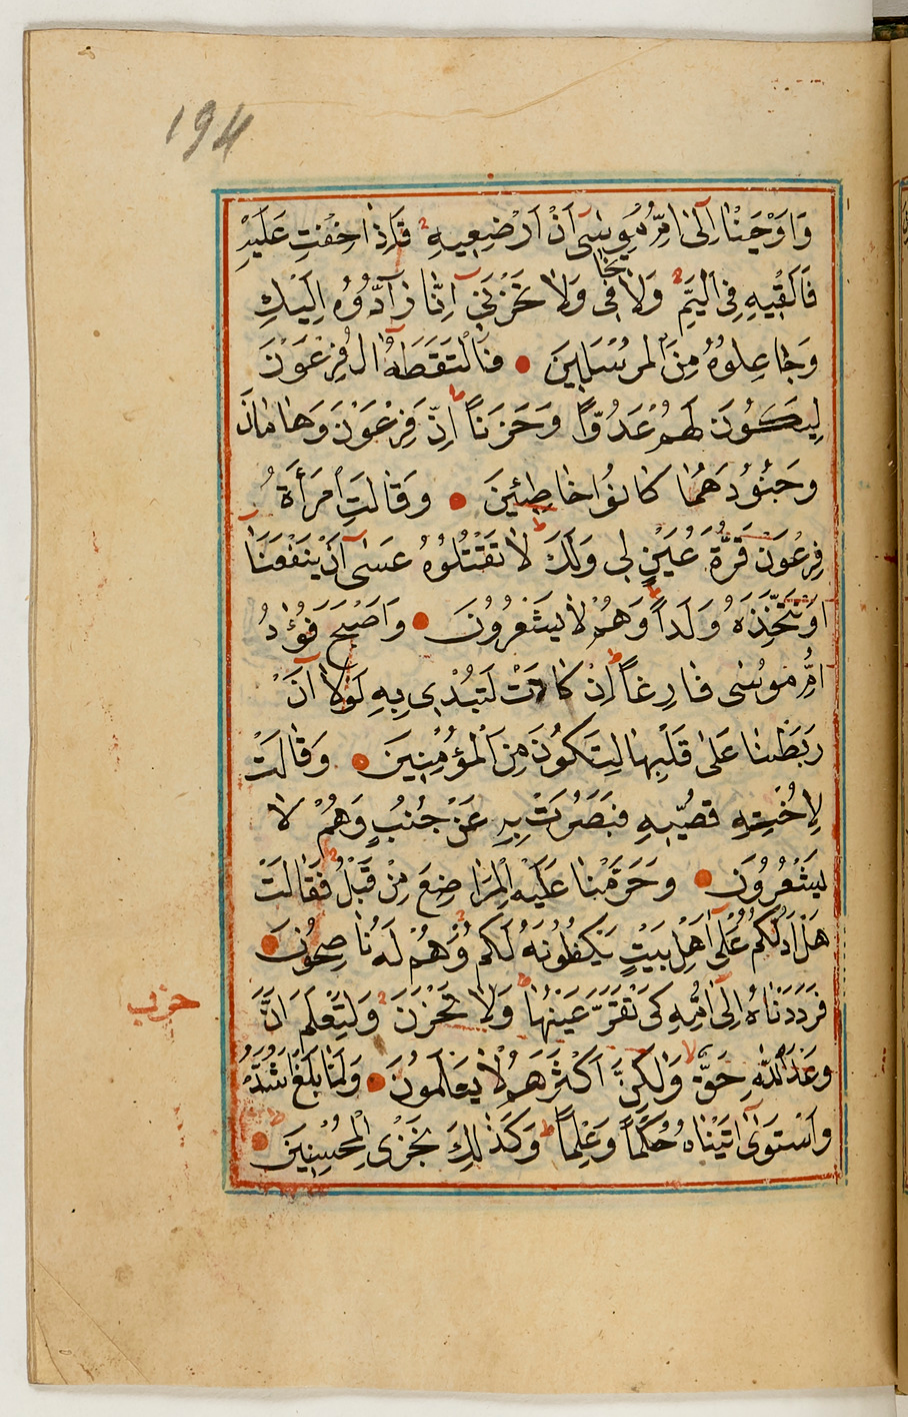 194
وَاَوْحَيْنَا اِلٰى اُمِّ مُوسٰى اَنْ اَرْضِعِيهِ فَاِذَا خِفْتِ عَلَيْهِ
فَاَلْقِيهِ فِى الْيَمِّ وَلَا تَخَافِى وَلَا تَحْزَنِى اِنَّا رَآدُّوهُ اِلَيْكِ
وَجَاعِلُوهُ مِنَ الْمُرْسَلِينَ فَالْتَقَطَهُ اٰلُ فِرْعَوْنَ
لِيَكُونَ لَهُمْ عَدُوًّا وَحَزَنًا اِنَّ فِرْعَوْنَ وَهَامَانَ
وَجُنُودَهُمَا كَانُوا خَاطِئِينَ وَقَالَتِ امْرَأَةُ
فِرْعَوْنَ قُرَّةُ عَيْنٍ لِى وَلَكَ لَا تَقْتُلُوهُ عَسٰى اَنْ يَنْفَعَنَا
اَوْ نَتَّخِذَهُ وَلَدًا وَهُمْ لَا يَشْعُرُونَ وَاَصْبَحَ فُؤٰدُ
اُمِّ مُوسٰى فَارِغًا اِنْ كَادَتْ لَتُبْدِى بِهِ لَوْلَا اَنْ
رَبَطْنَا عَلٰى قَلْبِهَا لِتَكُونَ مِنَ الْمُؤْمِنِينَ وَقَالَتْ
لِاُخْتِهِ قُصِّيهِ فَبَصُرَتْ بِهِ عَنْ جُنُبٍ وَهُمْ لَا
يَشْعُرُونَ وَحَرَّمْنَا عَلَيْهِ الْمَرَاضِعَ مِنْ قَبْلُ فَقَالَتْ
هَلْ اَدُلُّكُمْ عَلٰى اَهْلِ بَيْتٍ يَكْفُلُونَهُ لَكُمْ وَهُمْ لَهُ نَاصِحُونَ
فَرَدَدْنَاهُ اِلٰى اُمِّهِ كَىْ تَقَرَّ عَيْنُهَا وَلَا تَحْزَنَ وَلِتَعْلَمَ اَنَّ
حزب
وَعْدَ اللّٰهِ حَقٌّ وَلٰكِنَّ اَكْثَرَهُمْ لَا يَعْلَمُونَ وَلَمَّا بَلَغَ اَشُدَّهُ
وَاسْتَوٰى اٰتَيْنَاهُ حُكْمًا وَعِلْمًا وَكَذٰلِكَ نَجْزِى الْمُحْسِنِينَ